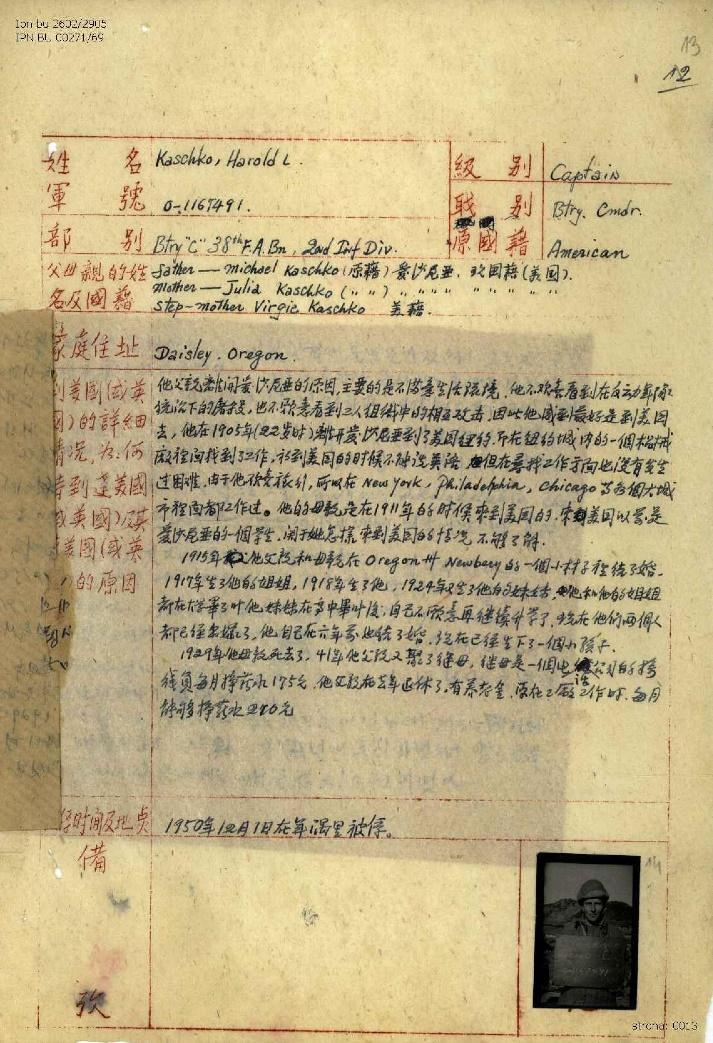 Ipn bu 2602/2905
IPN BU 00271/69
13
12
姓 名 Kaschko, Harold L.
級 别 Captain
軍 號 0-1167491.
職 别 Btry. Cmdr.
部 别 Btry "C" 38th F.A.Bn, 2nd Inf Div.
原國籍 American
父母親的姓名及國籍
father — michael Kaschko (原籍) 爱沙尼亚, 现国籍 (美国).
mother — Julia Kaschko ( " " ) " " " " " " " "
step-mother Virgie Kaschko 美籍.
家庭住址 Daisley. Oregon.
到美國(或英
國)的詳細
情况,為何
(或英國)及其
美國(或英
)的原因
他父親離開爱沙尼亚的原因,主要的是不滿意生活環境,他不欢喜看到在反动
統治下的, 也不愿意看到工人组織中的相互攻击,因此他感到最好是到美国
去,他在1905年(22岁时)離开爱沙尼亚到了美国纽约,并在纽约城内的一個机械
廠裡面找到了工作,初到美国的时候不能说英语,但在尋找工作方面也没有發生
过困难,由于他欢喜旅行,所以在New York, Philadelphia, Chicago等各個大城
市裡面都工作过。他的母親是在1911年的时候来到美国的,来美国以前是
爱沙尼亚的一個学生,关于她怎样来到美国的情况不够了解.
1915年他父親和母親在Oregon州 Newbery的一個小村子裡结了婚.
1917年生了他的姐姐,1918年生了他,1924年又生了他的妹妹,他和他的姐姐
都在大学畢了业他妹妹在高中畢业后,自己不愿意再继续升学了,现在他们两個人
都已经出嫁了,他自己在六年前也结了婚,现在已经生下了一個小孩子.
1929年他母親死去了,41年他父親又娶了继母,继母是一個电话公司的接
线員每月挣薪水175元,他父親在去年退休了,有养老金,原在工廠工作时,每月
能够挣薪水280元
俘时间及地点 1950年12月1日在军隅里被俘。
備
攷
14
strona: 0013